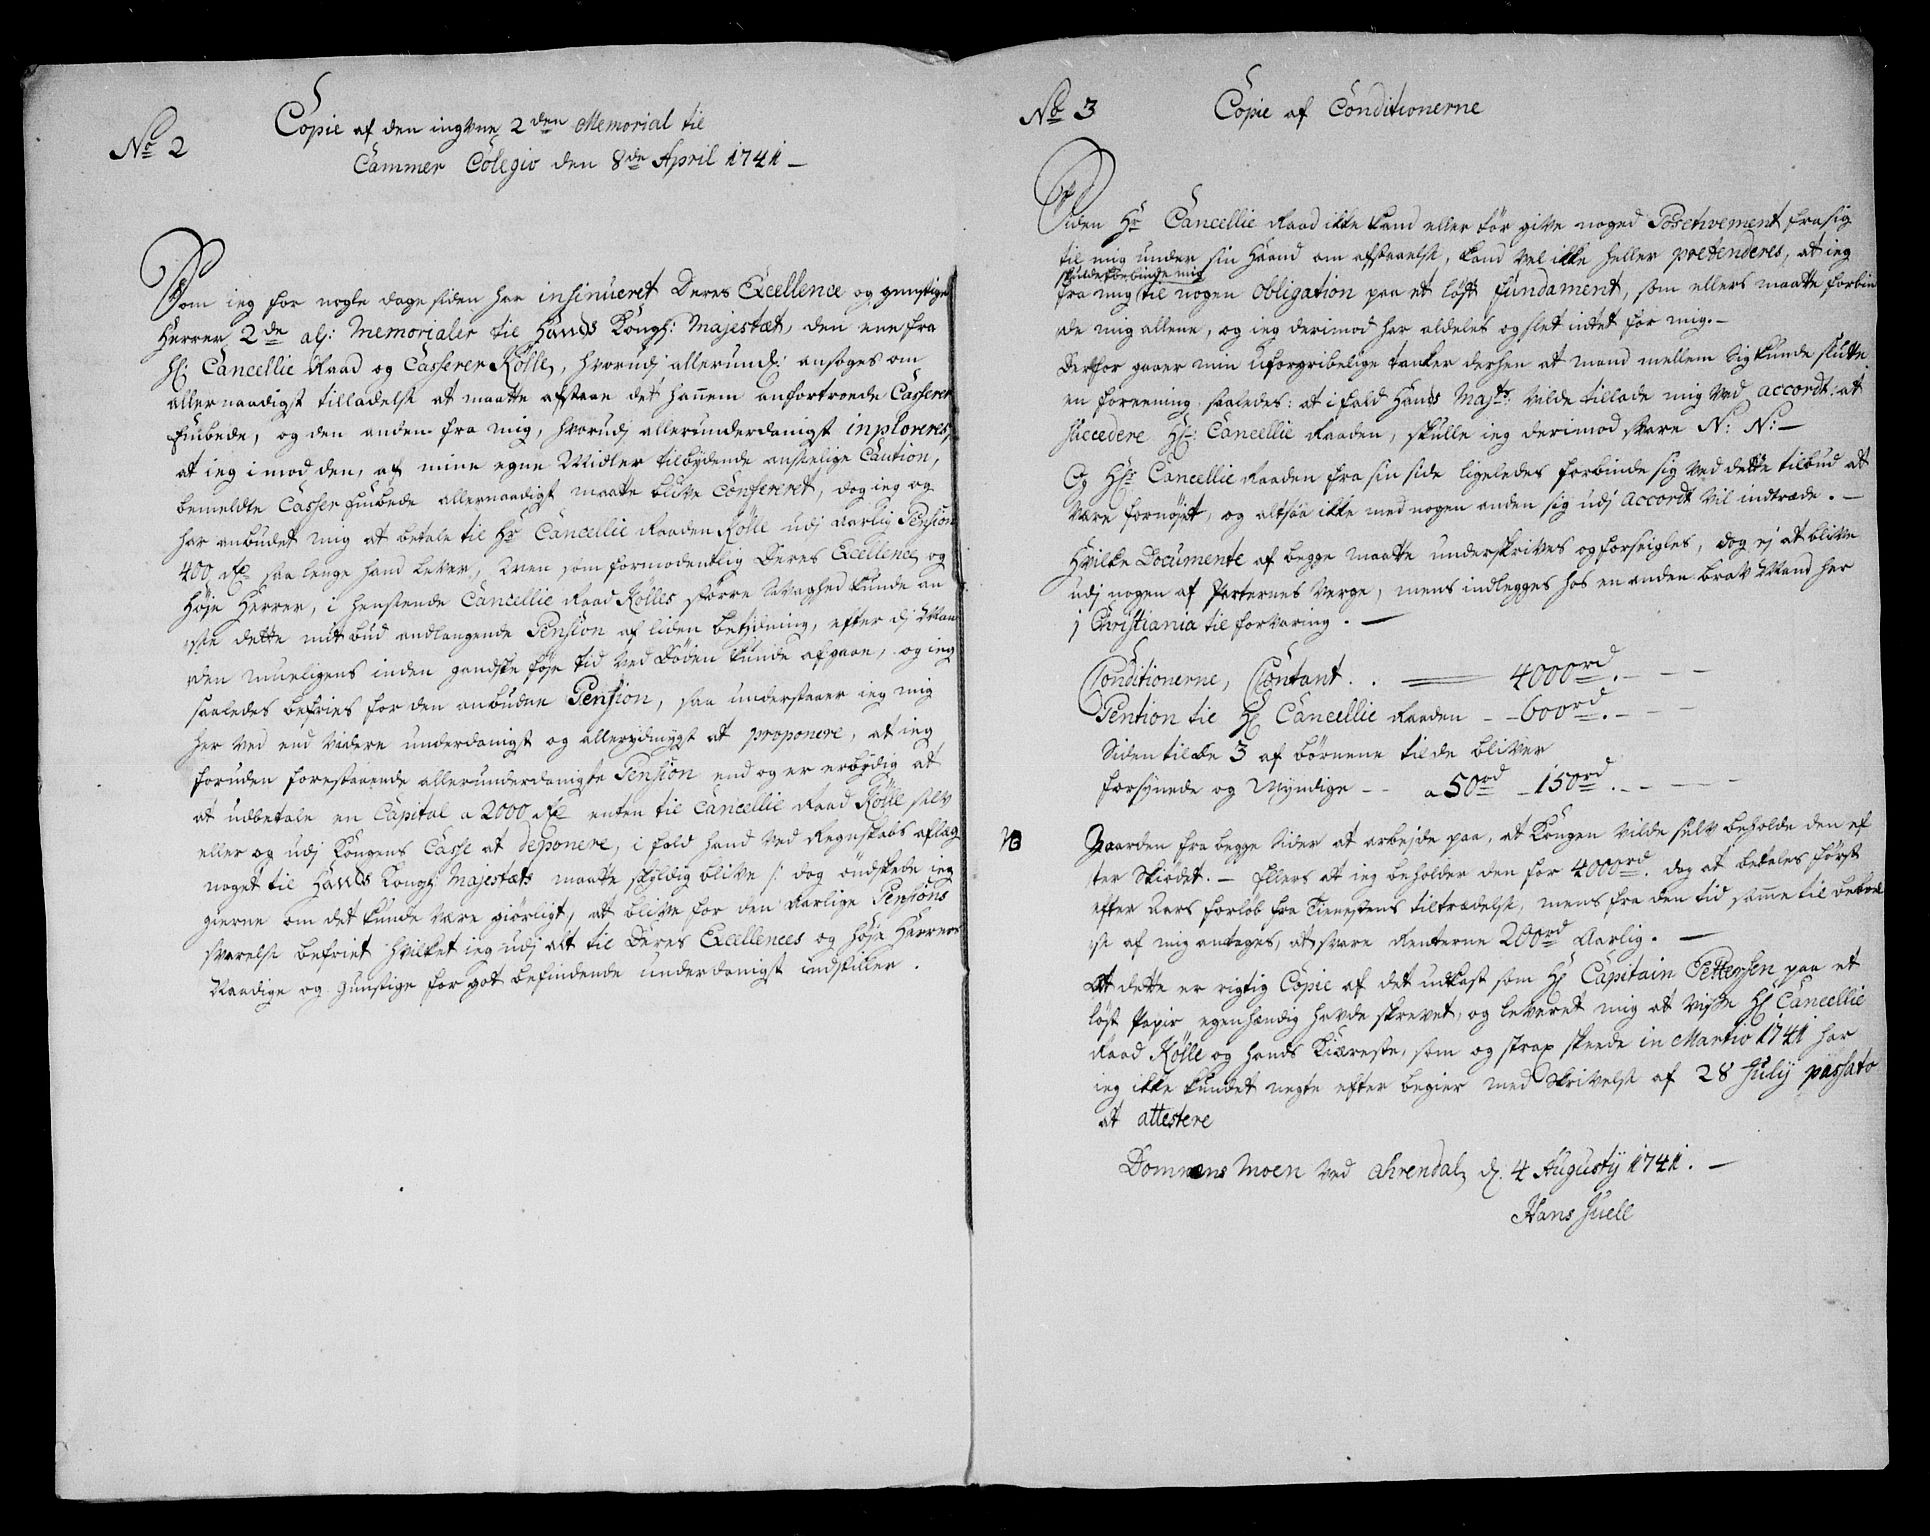 No 2
Copie af den ingvne 2den Memorial til
Cammer Colegio den 8de April 1741 –
Som ieg for nogle dage siden har insinueret Deres Excellence og gunstige
Herrer 2de alf: Memorialer til Hands Kongl: Majestæt, den ene fra
Hr: Cancellie Raad og Casserer Kölle, hvorudj allerund: ansøges om
allernaadigst tilladelse at maatte afstaae det hannem anfortroede Casserer
Embede, og den anden fra mig, hvorudj allerunderdanigst imploreres,
at ieg imod den, af mine egne Midler tilbydende anseelige Caution,
bemeldte Casser Embede allernaadigst maatte blive Confereret, dog ieg og
har anbudet mig at betale til Hr Cancellie Raaden Kölle udj aarlig Pension
400 rd saa lenge hand lever, Even som formodentlig Deres Excellence og
Høje Herrer, i henseende Cancellie Raad Kölles store Svaghed kunde an
see dette mit bud andlangende Pension af liden betydning, efter dj Man
den mueligens inden gandske føje tid ved Døden kunde afgaae, og ieg
saaledes befries for den anbudne Pension, saa understaaer ieg mig
her ved end videre underdanigst og allerydmygst at proponere, at ieg
foruden forestaaende allerunderdanigste Pension end og er erbødig at
at udbetale en Capital a 2000 rd enten til Cancellie Raad Kölle selv
eller og udj Kongens Casse at deponere, i fald hand ved Regnskabs aflæg
noget til Hands Kongl: Majestæts maatte skyldig blive /: dog øndskede ieg
gierne om det kunde være giørligt, at blive for den Aarlige Pensions
svarelse befriet hvilket ieg udj alt til Deres Excellences og Høje Herrers
Naadige og Gunstige for got befindende underdanigst indstiller .
No 3
Copie af Conditionerne
Siden Hr Cancellie Raad ikke kand eller tør give noged fra sig
til mig under sin Haand om afstaaelse, kand vel ikke heller prætenderes, at ieg
skulde forbinde mig
fra mig til nogen obligation paa et löst fundament, som ellers maatte forbin
de mig allene, og ieg derimod har aldeles og slet intet for mig. –
Derfor gaaer min uforgribelige tanker derhen at mand mellem sig kunde slutte
en foreening saaledes: at i fald Hands Majts: vilde tillade mig ved accordt at
succedere Hr: Cancellie Raaden, skulle ieg derimod svare N: N: –
Og Hr Cancellie Raaden fra sin side ligeledes forbinde sig ved dette tilbud at
være fornøjet, og altsaa ikke med nogen anden sig udj accordt vil indtræde . –
Hvilke Documente af begge maatte underskrives og forseigles, dog ej at blive
udj nogen af Parternes verge, mens indlegges hos en anden brav Mand her
j Christiania til forvaring . –
Conditionerne, Contant . . 4000rd. – –
Pention til Hr Cancellie Raaden – – 600rd. – –
Siden til de 3 af børnene til de bliver
forsynede og Myndige – – a 50rd – 150rd. – –
NB
Gaarden fra begge sider at arbejde paa, at Kongen vilde selv beholde den ef
ter Skiödet. – Ellers at ieg beholder den for 4000rd. dog at betales først
efter aars forløb fra Tienestens tiltrædelse, mens fra den tid samme til
af mig antages, at svare Renterne 200rd Aarlig . –
At dette er rigtig Copie af det udkast som Hr Capitain Pettersen paa et
löst Papir egenhændig havde skrevet, og leveret mig at vise Hr Cancellie
Raad Kölle og hands Kiæreste, som og strax skeede in Martio 1741 har
ieg ikke kundet negte efter begier med Skrivelse af 28 Julij passato
at attestere
Domnens Moen ved Ahrendal, d. 4 Augustij 1741 . –
Hans Juell